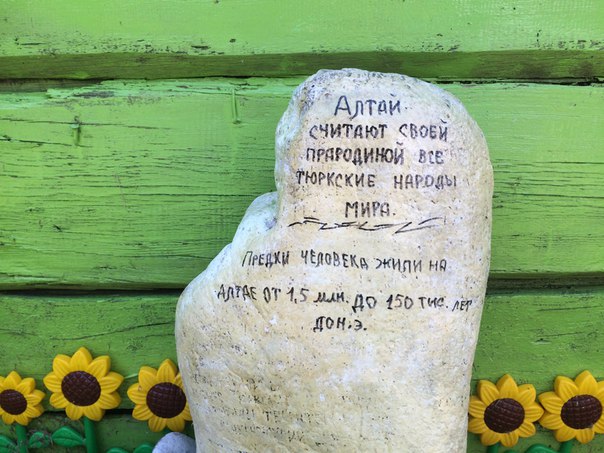 Алтай
считают своей
прародиной все
тюркские народы
мира.
Предки человека жили на
Алтае от 1,5 млн. до 150 тыс. лет
до н.э.